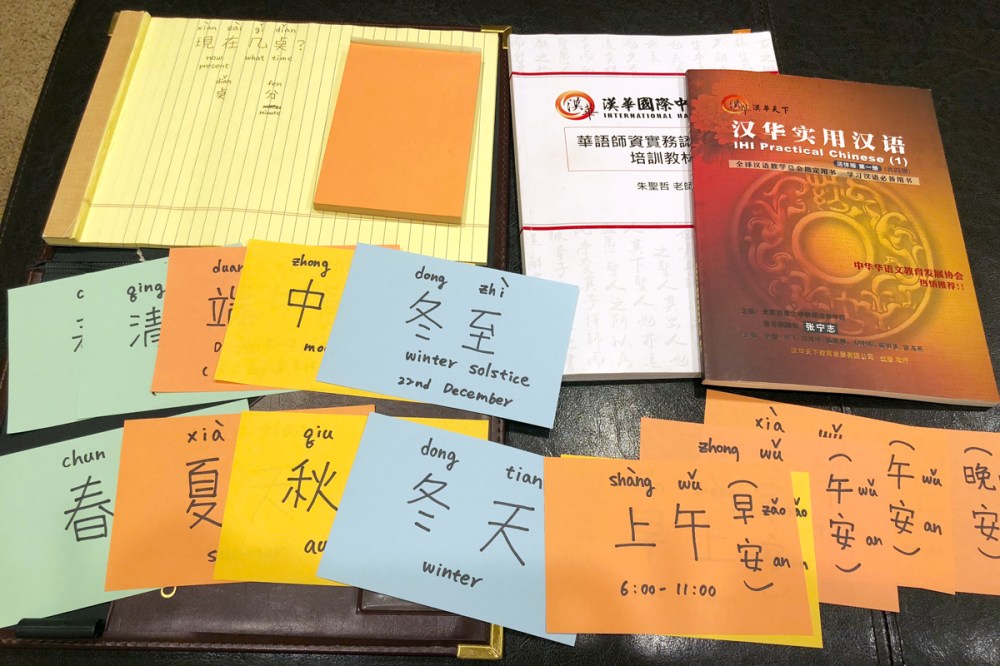 xiàn zài jǐ diǎn
現在几桌?
now what time
present
diǎn fen
桌 分
minute
漢華國際中
INTERNATIONAL HA
華語師資實務認
培訓教材
朱聖哲 老師
漢華天下
汉华实用汉语
IHI Practical Chinese (1)
全球汉语教学总会指定用书 学习汉语必备用书
中华华语文教育发展协会
热情推荐!!
张宁志
汉华天下教育发展有限公司 出版发行
c
qing
清
duan
端
D
zhong
中
moo
dong zhì
冬至
winter solstice
22nd December
chun
春
xià
夏
s
qiu
秋
au
dong tian
冬天
winter
shàng wǔ
上午
(早 zǎo
安 an)
6:00 - 11:00
zhong wǔ
(午 wǔ
安 an)
xià wǔ
(午 wǔ
安 an)
(晚
安